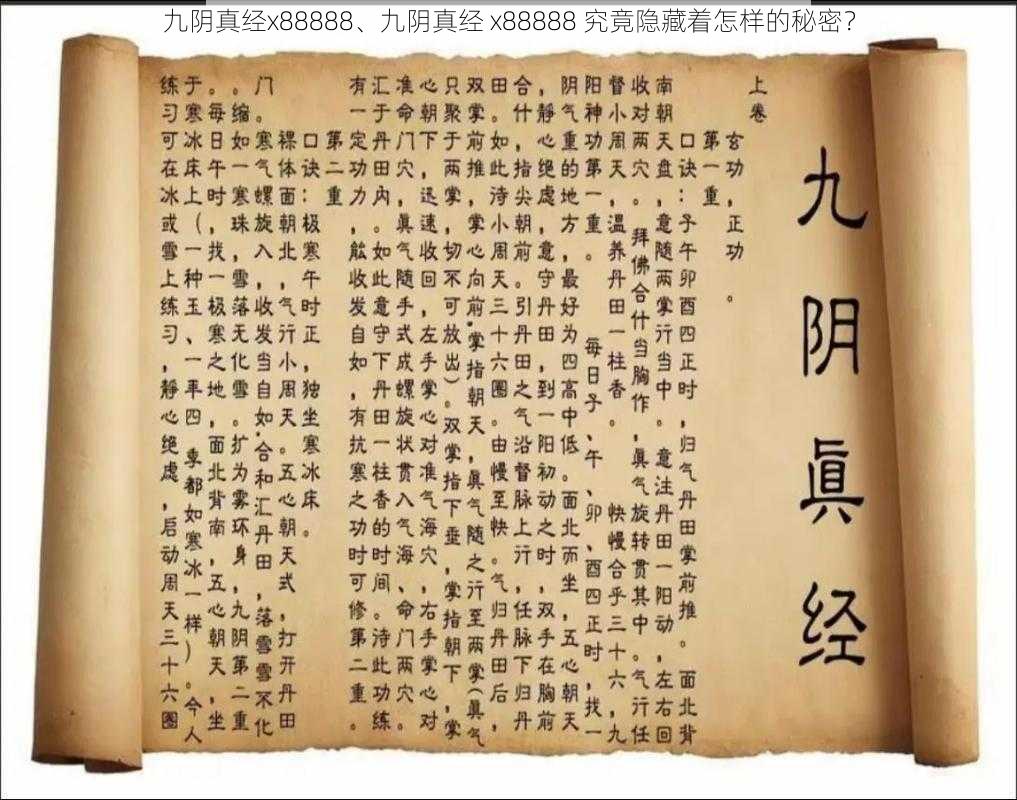 九阴真经x88888、九阴真经 x88888 究竟隐藏着怎样的秘密？
九阴眞经
上卷
玄功，正功。
第一重，
口诀：子午卯酉四正时，归气丹田掌前推。面北背
南朝天盘，意随两掌行当中。意注丹田一阳动，左右回
收对两穴。，拜佛合什当胸作，眞气旋转贯其中。气行任
督小周天，温养丹田一柱香。快慢合乎三十六，九
阳神功第一重。每日子、午、卯、酉四正时，找一
阴气重的地方，最好为四高中低。面北而坐，五心朝天
，静心绝虑，意守丹田，到一阳初动之时，双手在胸前
合什，指尖朝前。引丹田之气沿督脉上行，任脉下归丹
田。如此待小周天三十六圈。由慢至快。气归丹田后，
双掌前推，掌心向前，掌指朝天，眞气随之行至两掌(眞气
只聚于两掌，切不可放出)。双掌指下垂，掌指朝下，掌
心朝下，迅速收回，左手掌心对准气海穴，右手掌心对
准命门穴，眞气随手式成螺旋状贯入气海、命门两穴。
汇于丹田内。如此意守下丹田一柱香的时间。待此功练
有一定功力，能收发自如，有抗寒之功时可修第二重。
第二重
口诀：极寒午时正，独坐寒冰床。
裸体面朝北，气行小周天。五心朝天式，打开丹田
门寒气螺旋入，收发当自如.合和汇丹田，落雪雪不化
。缩如一寒珠，雪落无化雪。扩为雾环身，九阴第二重
。每日午时，找一极寒之地，面北背南，五心朝天，坐
于寒冰床上(一种玉、一年四季都如寒冰一样)。今人
练习可在冰或雪上练习，静心绝虑，启动周天三十六圈